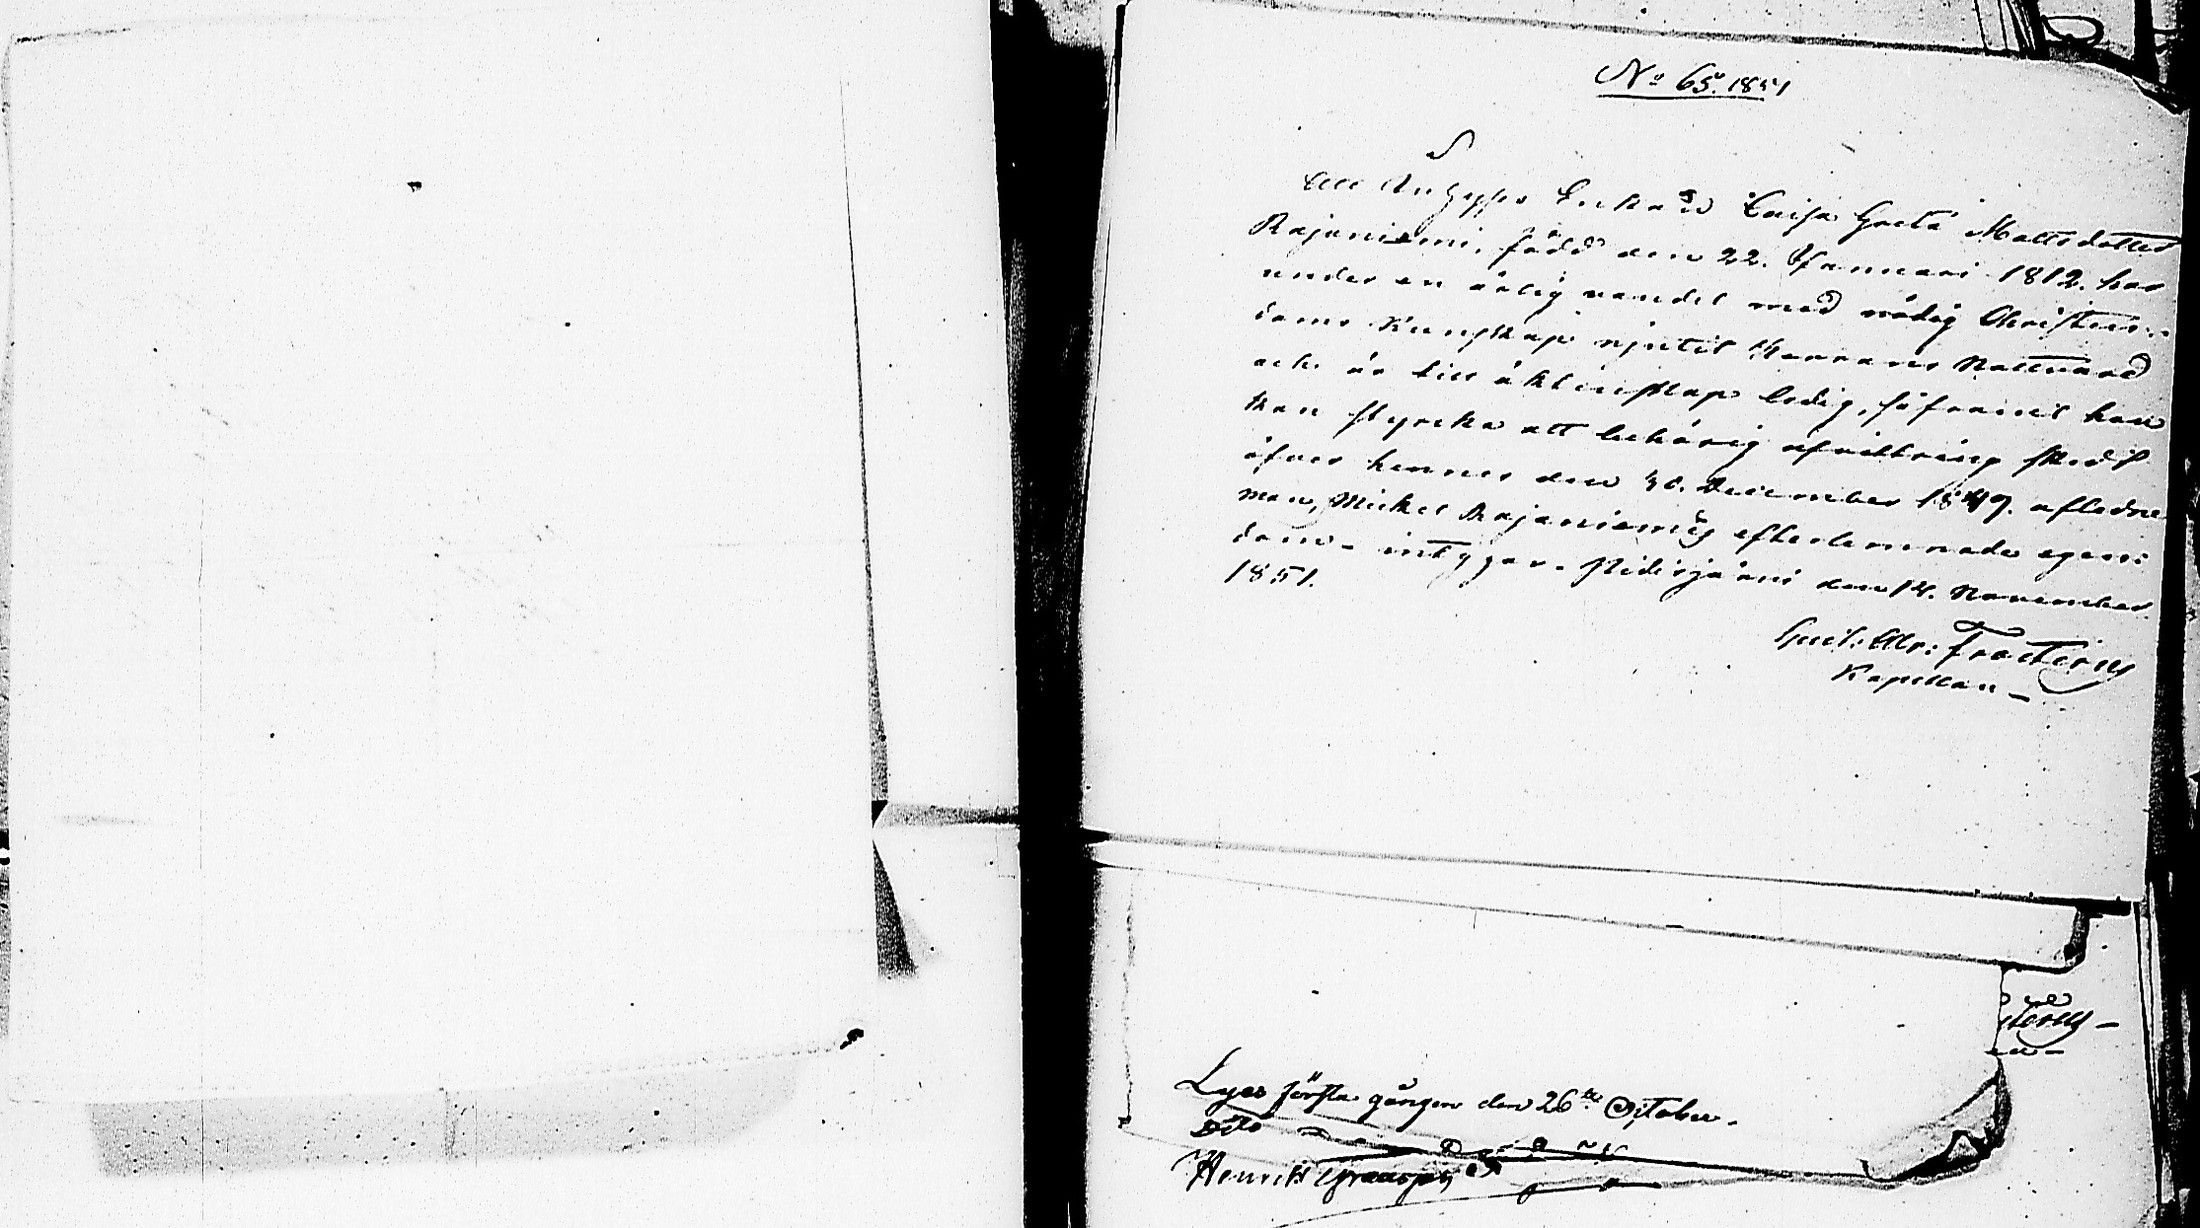 No 65. 1851
Att Inhyses Enkan Caisa Greta Mattsdotter
Rajaniemi, född den 22. Januari 1812. har
under en ärlig vandel med nödig Christen-
doms Kunskap njutit Herrans Nattvard
och är till äktenskap ledig, såframt hon
kan styrka att behörig afvittring skedt
öfver hennes den 30. December 1849. aflidne
man, Mickel Rajaniemis efterlemnade egen-
dom - intygar. Pidisjärvi den 14. November
1851.
Gust: Alr: Frosterus
Kapellan -
Lyses första gången den 26te October.
Henrik